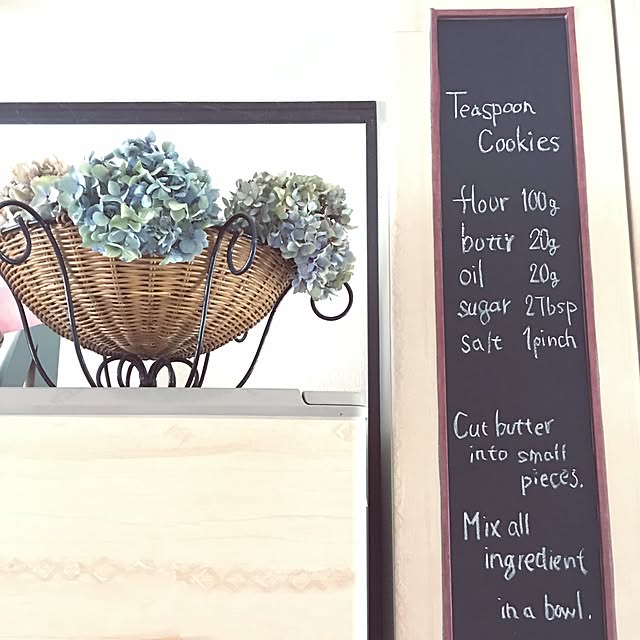 Teaspoon
Cookies
flour 100g
butter 20g
oil 20g
sugar 2Tbsp
salt 1pinch
Cut butter
into small
pieces.
Mix all
ingredient
in a bowl.